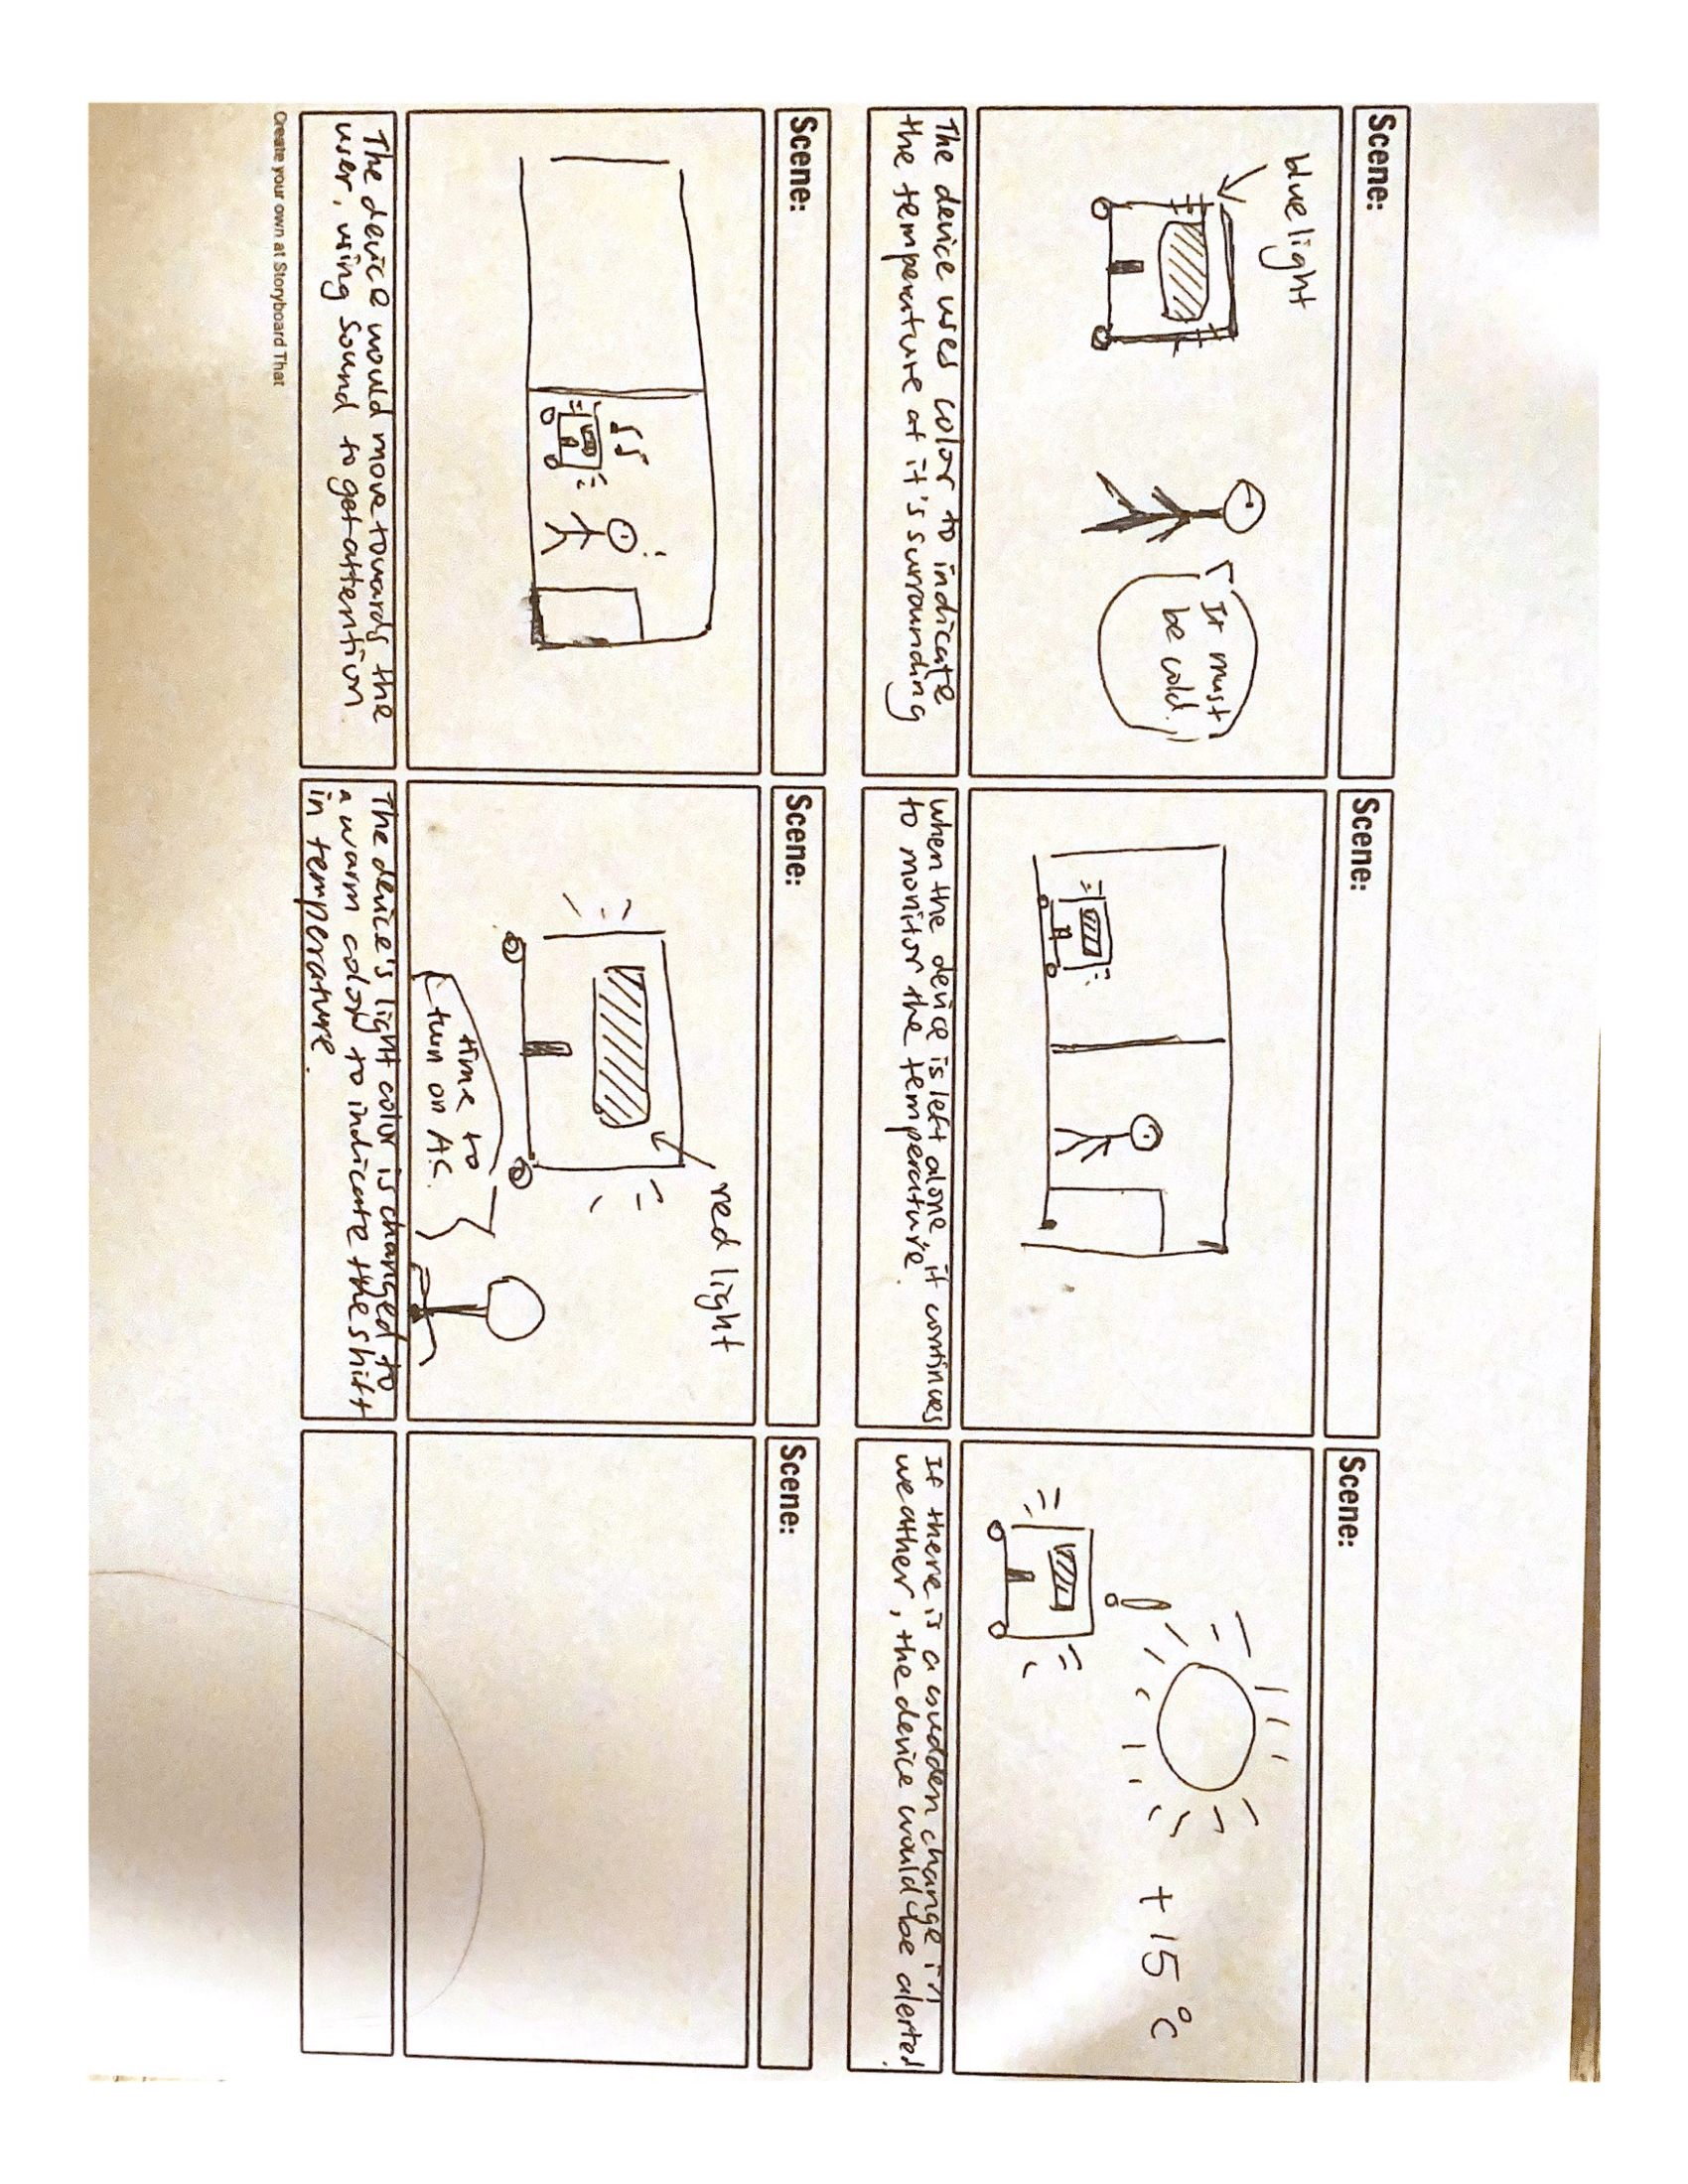 Scene:
blue light
It must
be cold.
The device uses color to indicate
the temperature at it's surrounding
Scene:
when the device is left alone, it continues
to monitor the temperature.
Scene:
+ 15 °C
If there is a sudden change in
weather, the device would be alerted.
Scene:
The device would move towards the
user, using sound to get attention
Scene:
red light
time to
turn on A.C.
The device's light color is changed to
a warm color to indicate the shift
in temperature.
Scene:
Create your own at Storyboard That